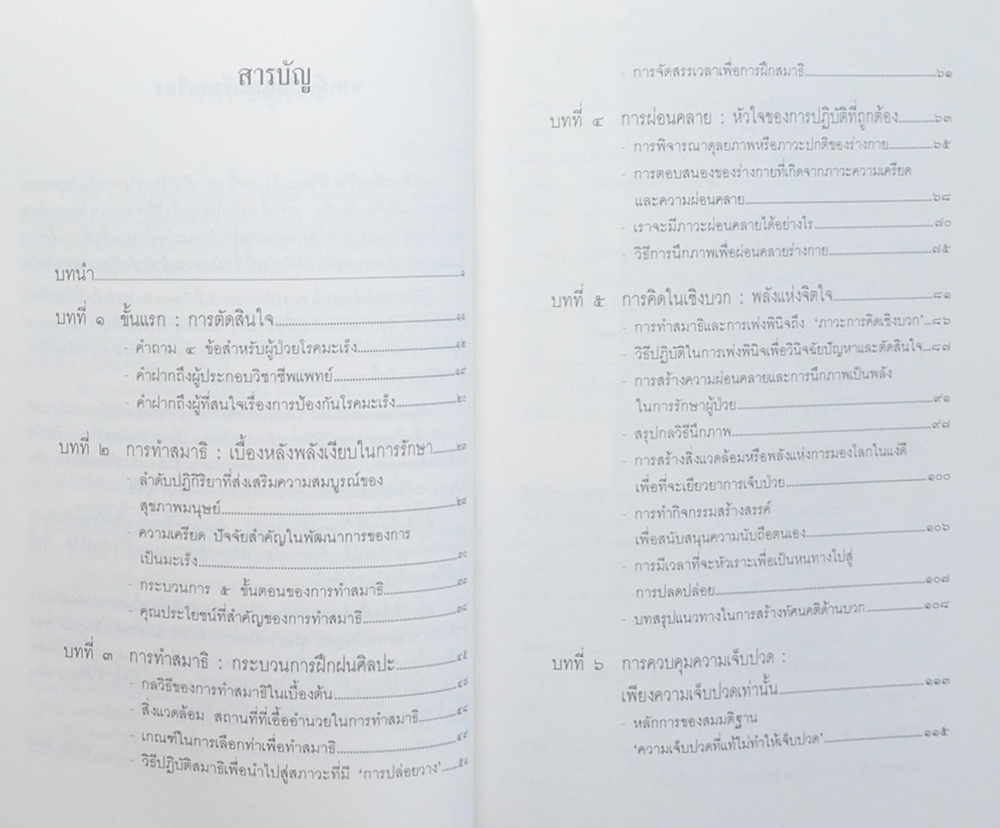 สารบัญ
บทนำ
บทที่ ๑ ขั้นแรก : การตัดสินใจ
- คำถาม ๔ ข้อสำหรับผู้ป่วยโรคมะเร็ง
- คำฝากถึงผู้ประกอบวิชาชีพแพทย์
- คำฝากถึงผู้ที่สนใจเรื่องการป้องกันโรคมะเร็ง
บทที่ ๒ การทำสมาธิ : เบื้องหลังพลังเงียบในการรักษา
- ลำดับปฏิกิริยาที่ส่งเสริมความสมบูรณ์ของ
สุขภาพมนุษย์
- ความเครียด ปัจจัยสำคัญในพัฒนาการของการ
เป็นมะเร็ง
- กระบวนการ ๕ ขั้นตอนของการทำสมาธิ
- คุณประโยชน์ที่สำคัญของการทำสมาธิ
บทที่ ๓ การทำสมาธิ : กระบวนการฝึกฝนศิลปะ
- กลวิธีของการทำสมาธิในเบื้องต้น
- สิ่งแวดล้อม สถานที่ที่เอื้ออำนวยในการทำสมาธิ
- เกณฑ์ในการเลือกท่าเพื่อทำสมาธิ
- วิธีปฏิบัติสมาธิเพื่อนำไปสู่สภาวะที่มี ‘การปล่อยวาง’
- การจัดสรรเวลาเพื่อการฝึกสมาธิ ๖๑
บทที่ ๔ การผ่อนคลาย : หัวใจของการปฏิบัติที่ถูกต้อง ๖๓
- การพิจารณาดุลยภาพหรือภาวะปกติของร่างกาย ๖๕
- การตอบสนองของร่างกายที่เกิดจากภาวะความเครียด
และความผ่อนคลาย ๖๘
- เราจะมีภาวะผ่อนคลายได้อย่างไร ๗๐
- วิธีการนึกภาพเพื่อผ่อนคลายร่างกาย ๗๕
บทที่ ๕ การคิดในเชิงบวก : พลังแห่งจิตใจ ๘๑
- การทำสมาธิและการเพ่งพินิจถึง ‘ภาวะการคิดเชิงบวก’ ๘๖
- วิธีปฏิบัติในการเพ่งพินิจเพื่อวินิจฉัยปัญหาและตัดสินใจ ๘๗
- การสร้างความผ่อนคลายและการนึกภาพเป็นพลัง
ในการรักษาผู้ป่วย ๙๑
- สรุปกลวิธีนึกภาพ ๙๘
- การสร้างสิ่งแวดล้อมหรือพลังแห่งการมองโลกในแง่ดี
เพื่อที่จะเยียวยาการเจ็บป่วย ๑๐๐
- การทำกิจกรรมสร้างสรรค์
เพื่อสนับสนุนความนับถือตนเอง ๑๐๖
- การมีเวลาที่จะหัวเราะเพื่อเป็นหนทางไปสู่
การปลดปล่อย ๑๐๗
- บทสรุปแนวทางในการสร้างทัศนคติด้านบวก ๑๐๘
บทที่ ๖ การควบคุมความเจ็บปวด :
เพียงความเจ็บปวดเท่านั้น ๑๑๓
- หลักการของสมมติฐาน
‘ความเจ็บปวดที่แท้ไม่ทำให้เจ็บปวด’ ๑๑๕